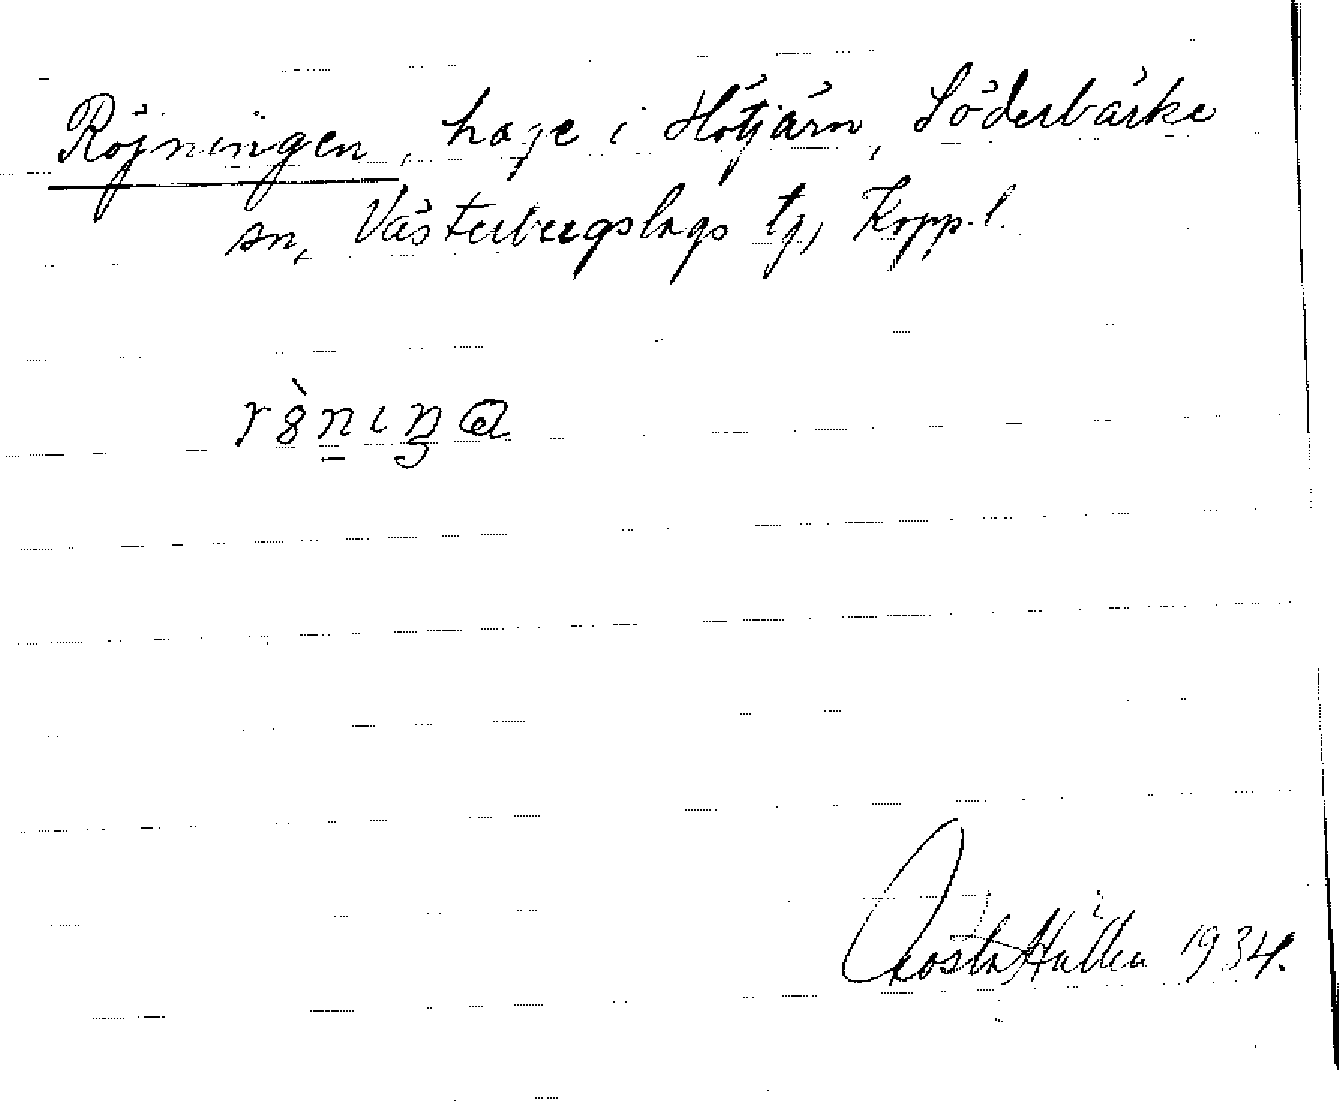 Röjningen, hage i Hötjärn, Söderbärke
sn, Västerbergslags tg, Kopp. l.
Gösta Hallén 1934.